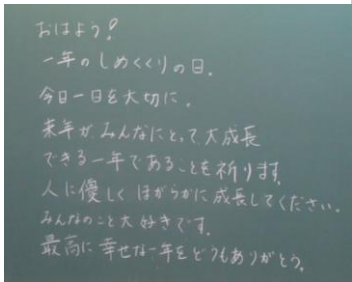 おはよう!
一年のしめくくりの日。
今日一日を大切に。
来年がみんなにとって大成長
できる一年であることを祈ります。
人に優しくほがらかに成長してください。
みんなのこと大好きです。
最高に幸せな一年をどうもありがとう。